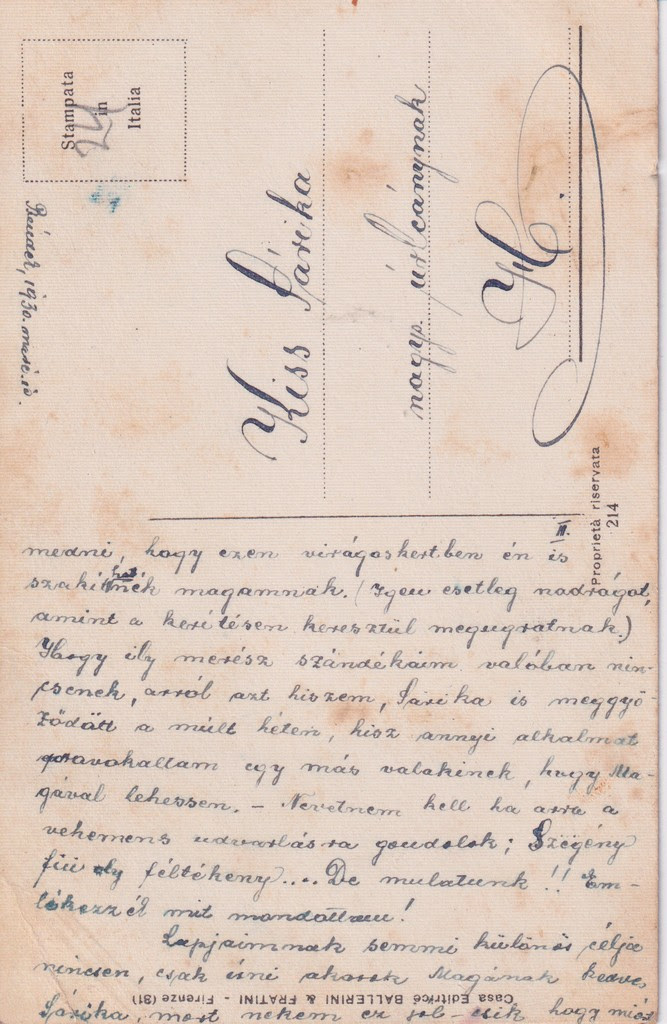 Stampata
in
Italia
24
1930.
Kiss Sárika
nagys. úrleánynak
H.
Proprietà riservata
214
Casa Editrice BALLERINI & FRATINI - Firenze (31)
II.
medni, hogy ezen virágoskertben én is
szakíthatnék magamnak. (Igen esetleg nadrágot,
amint a kerítésen keresztül megugratnak.)
Hogy ily merész szándékaim valóban nin-
csenek, arról azt hiszem, Sárika is meggyő-
ződött a múlt héten, hisz annyi alkalmat
provokáltam egy más valakinek, hogy Ma-
gával lehessen. - Nevetnem kell ha arra a
vehemens udvarlásra gondolok; Szegény
fiú oly féltékeny.... De mulatunk!! Em-
lékezzék mit mondottam!
Lapjaimnak semmi különös célja
nincsen, csak írni akarok Magának kedves
Sárika, mert nekem ez jól-esik hogy